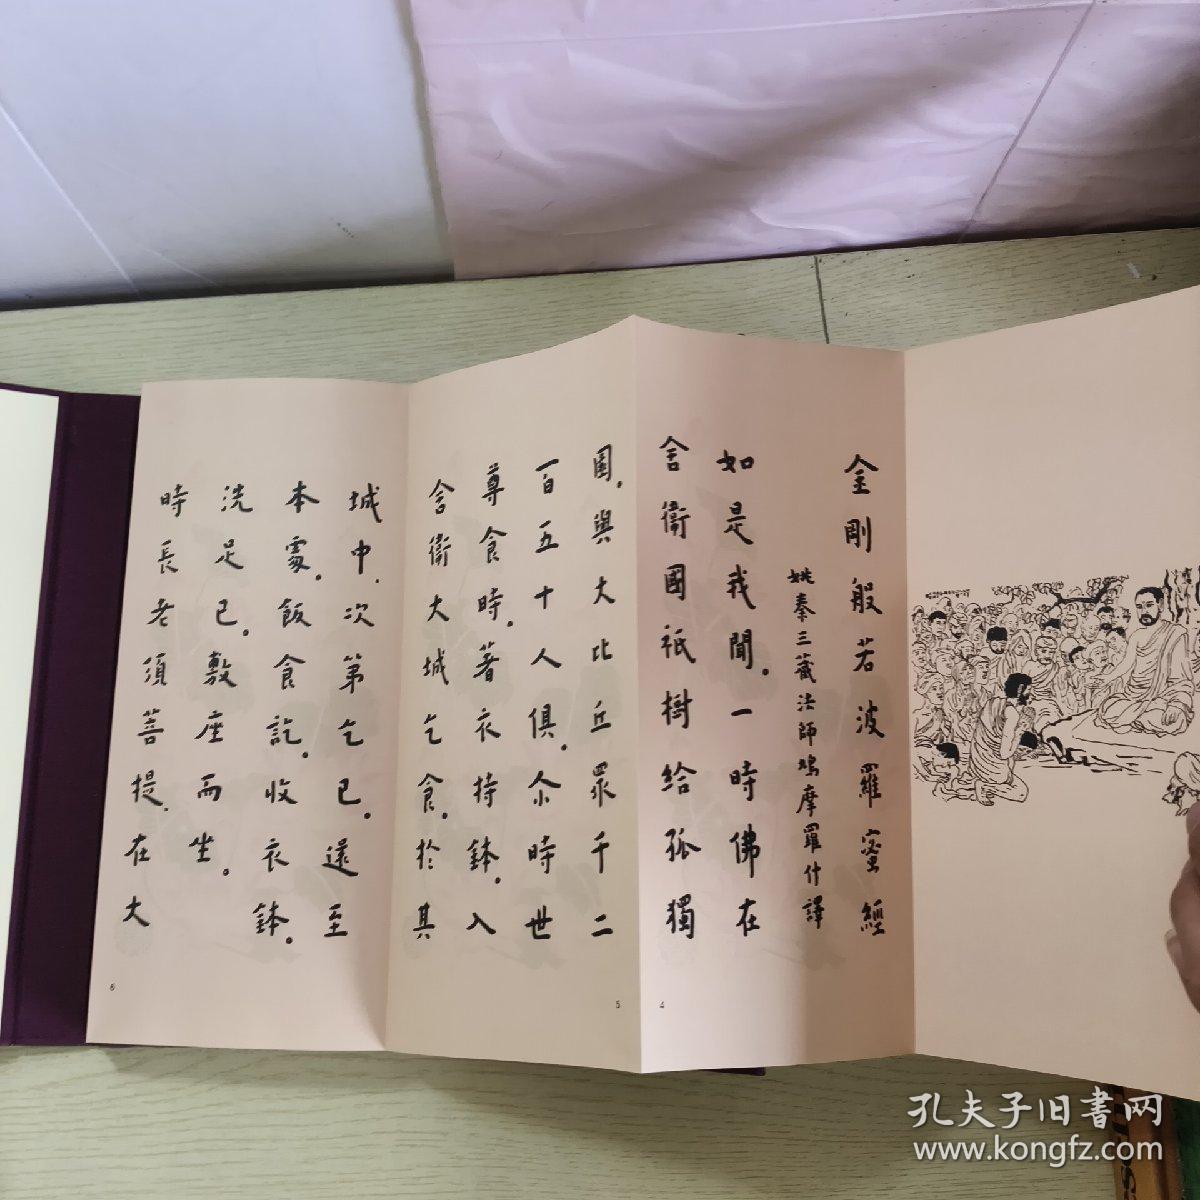 金剛般若波羅蜜經
姚秦三藏法師鳩摩羅什譯
如是我聞。一時佛在
舍衞國祇樹給孤獨
園。與大比丘眾千二
百五十人俱。尒時世
尊食時。著衣持鉢。入
舍衞大城乞食。於其
城中、次第乞已。還至
本處。飯食訖。收衣鉢。
洗足已。敷座而坐。
時長老須菩提、在大
4
5
6
孔夫子旧書网
www.kongfz.com